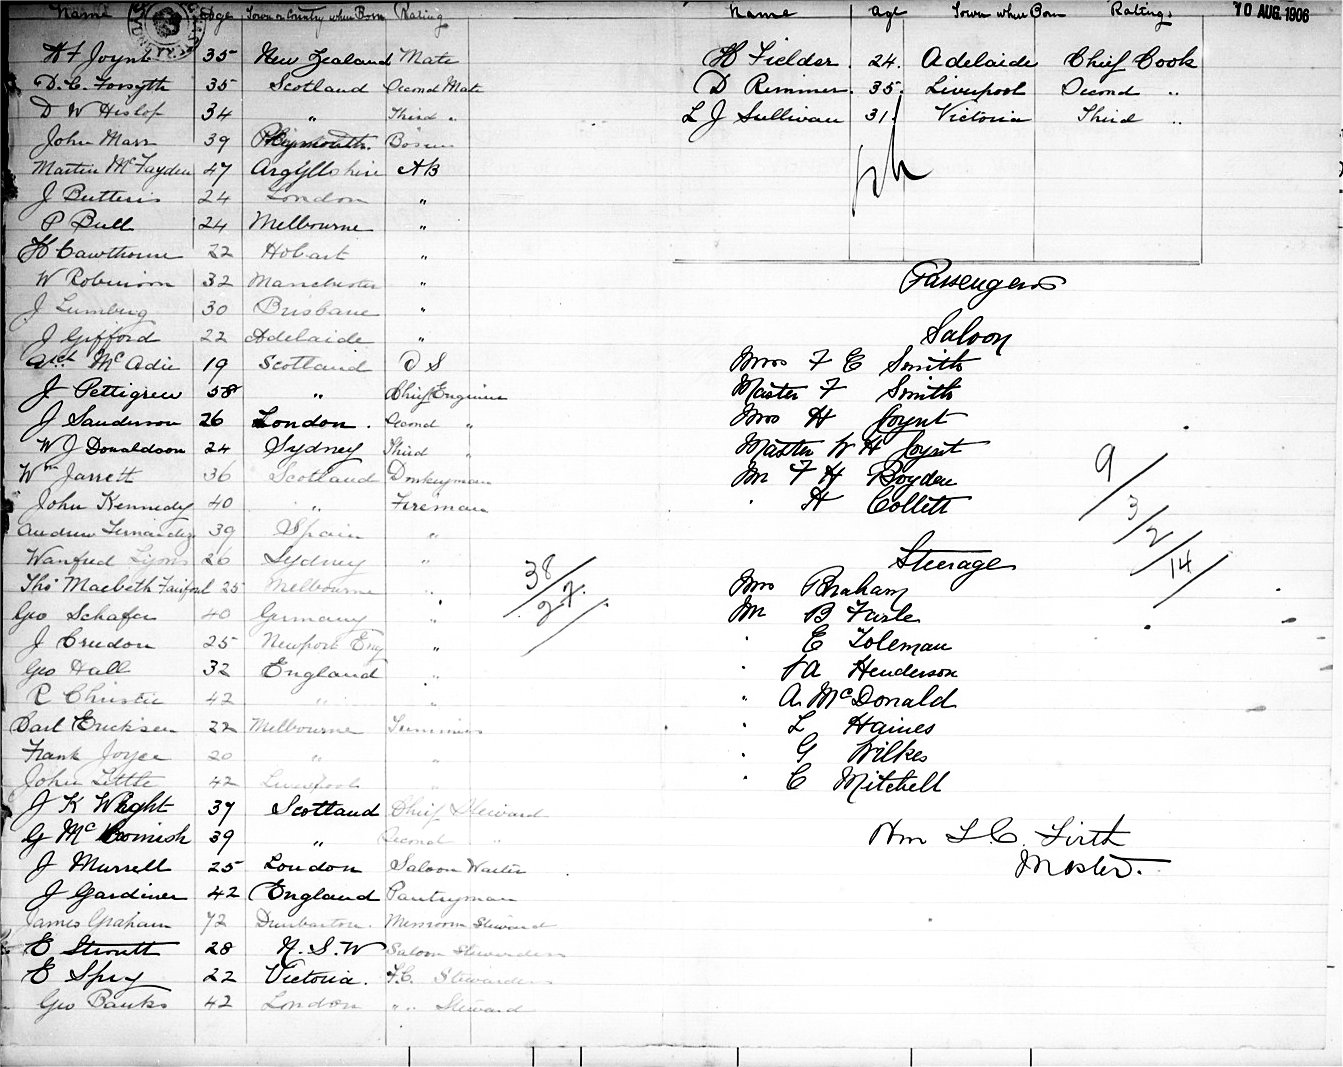 Name Age Town or Country where Born Rating
H F Joynt 35 New Zealand Mate
D. C. Forsyth 35 Scotland Second Mate
D W Hislop 34 " Third "
John Marr 39 Plymouth. Bosun
Martin McFayden 47 Argyllshire AB
J Butteris 24 London "
P Bull 24 Melbourne "
H Cawthorne 22 Hobart "
W Robinson 32 Manchester "
J Lumberg 30 Brisbane "
J Gifford 22 Adelaide "
Arch McAdie 19 Scotland O S
J Pettigrew 58 " Chief Engineer
J Sanderson 26 London. Second "
W J Donaldson 24 Sydney Third "
Wm Jarrett 36 Scotland Donkeyman
John Kennedy 40 " Fireman
Andrew Fernandez 39 Spain "
Wanfred Lyons 26 Sydney "
Thos Macbeth Fairford 25 Melbourne "
Geo Schafer 40 Germany "
J Crudon 25 Newport Eng "
Geo Hall 32 England "
R Christie 42 " "
Carl Ericksen 22 Melbourne Trimmers
Frank Joyce 20 " "
John Little 42 Liverpool "
J K Wright 37 Scotland Chief Steward
G McCornish 39 " Second "
J Murrell 25 London Saloon Waiter
J Gardiner 42 England Pantryman
James Graham 72 Dunbarton. Messroom Steward
E Stroutt 28 N. S. W Saloon Stewardess
E Spry 22 Victoria. F.C. Stewardess
Geo Banks 42 London " " Steward
38/
27/
10 AUG. 1906
Name age Town where Born Rating.
H Fielder 24. Adelaide Chief Cook
D Rimmer. 35. Liverpool Second "
L J Sullivan 31. Victoria Third "
Passengers
Saloon
Mrs F E Smith
Master F Smith
Mrs H Joynt
Master W H Joynt
Mr F H Boyden
" H Collett
9/
3/
2/
14/
Steerage
Mrs Braham
Mr B Furle
" E Toleman
" A Henderson
" A. McDonald
" L Haines
" G Wilkes
" C Mitchell
Wm L. C. Firth
Master.